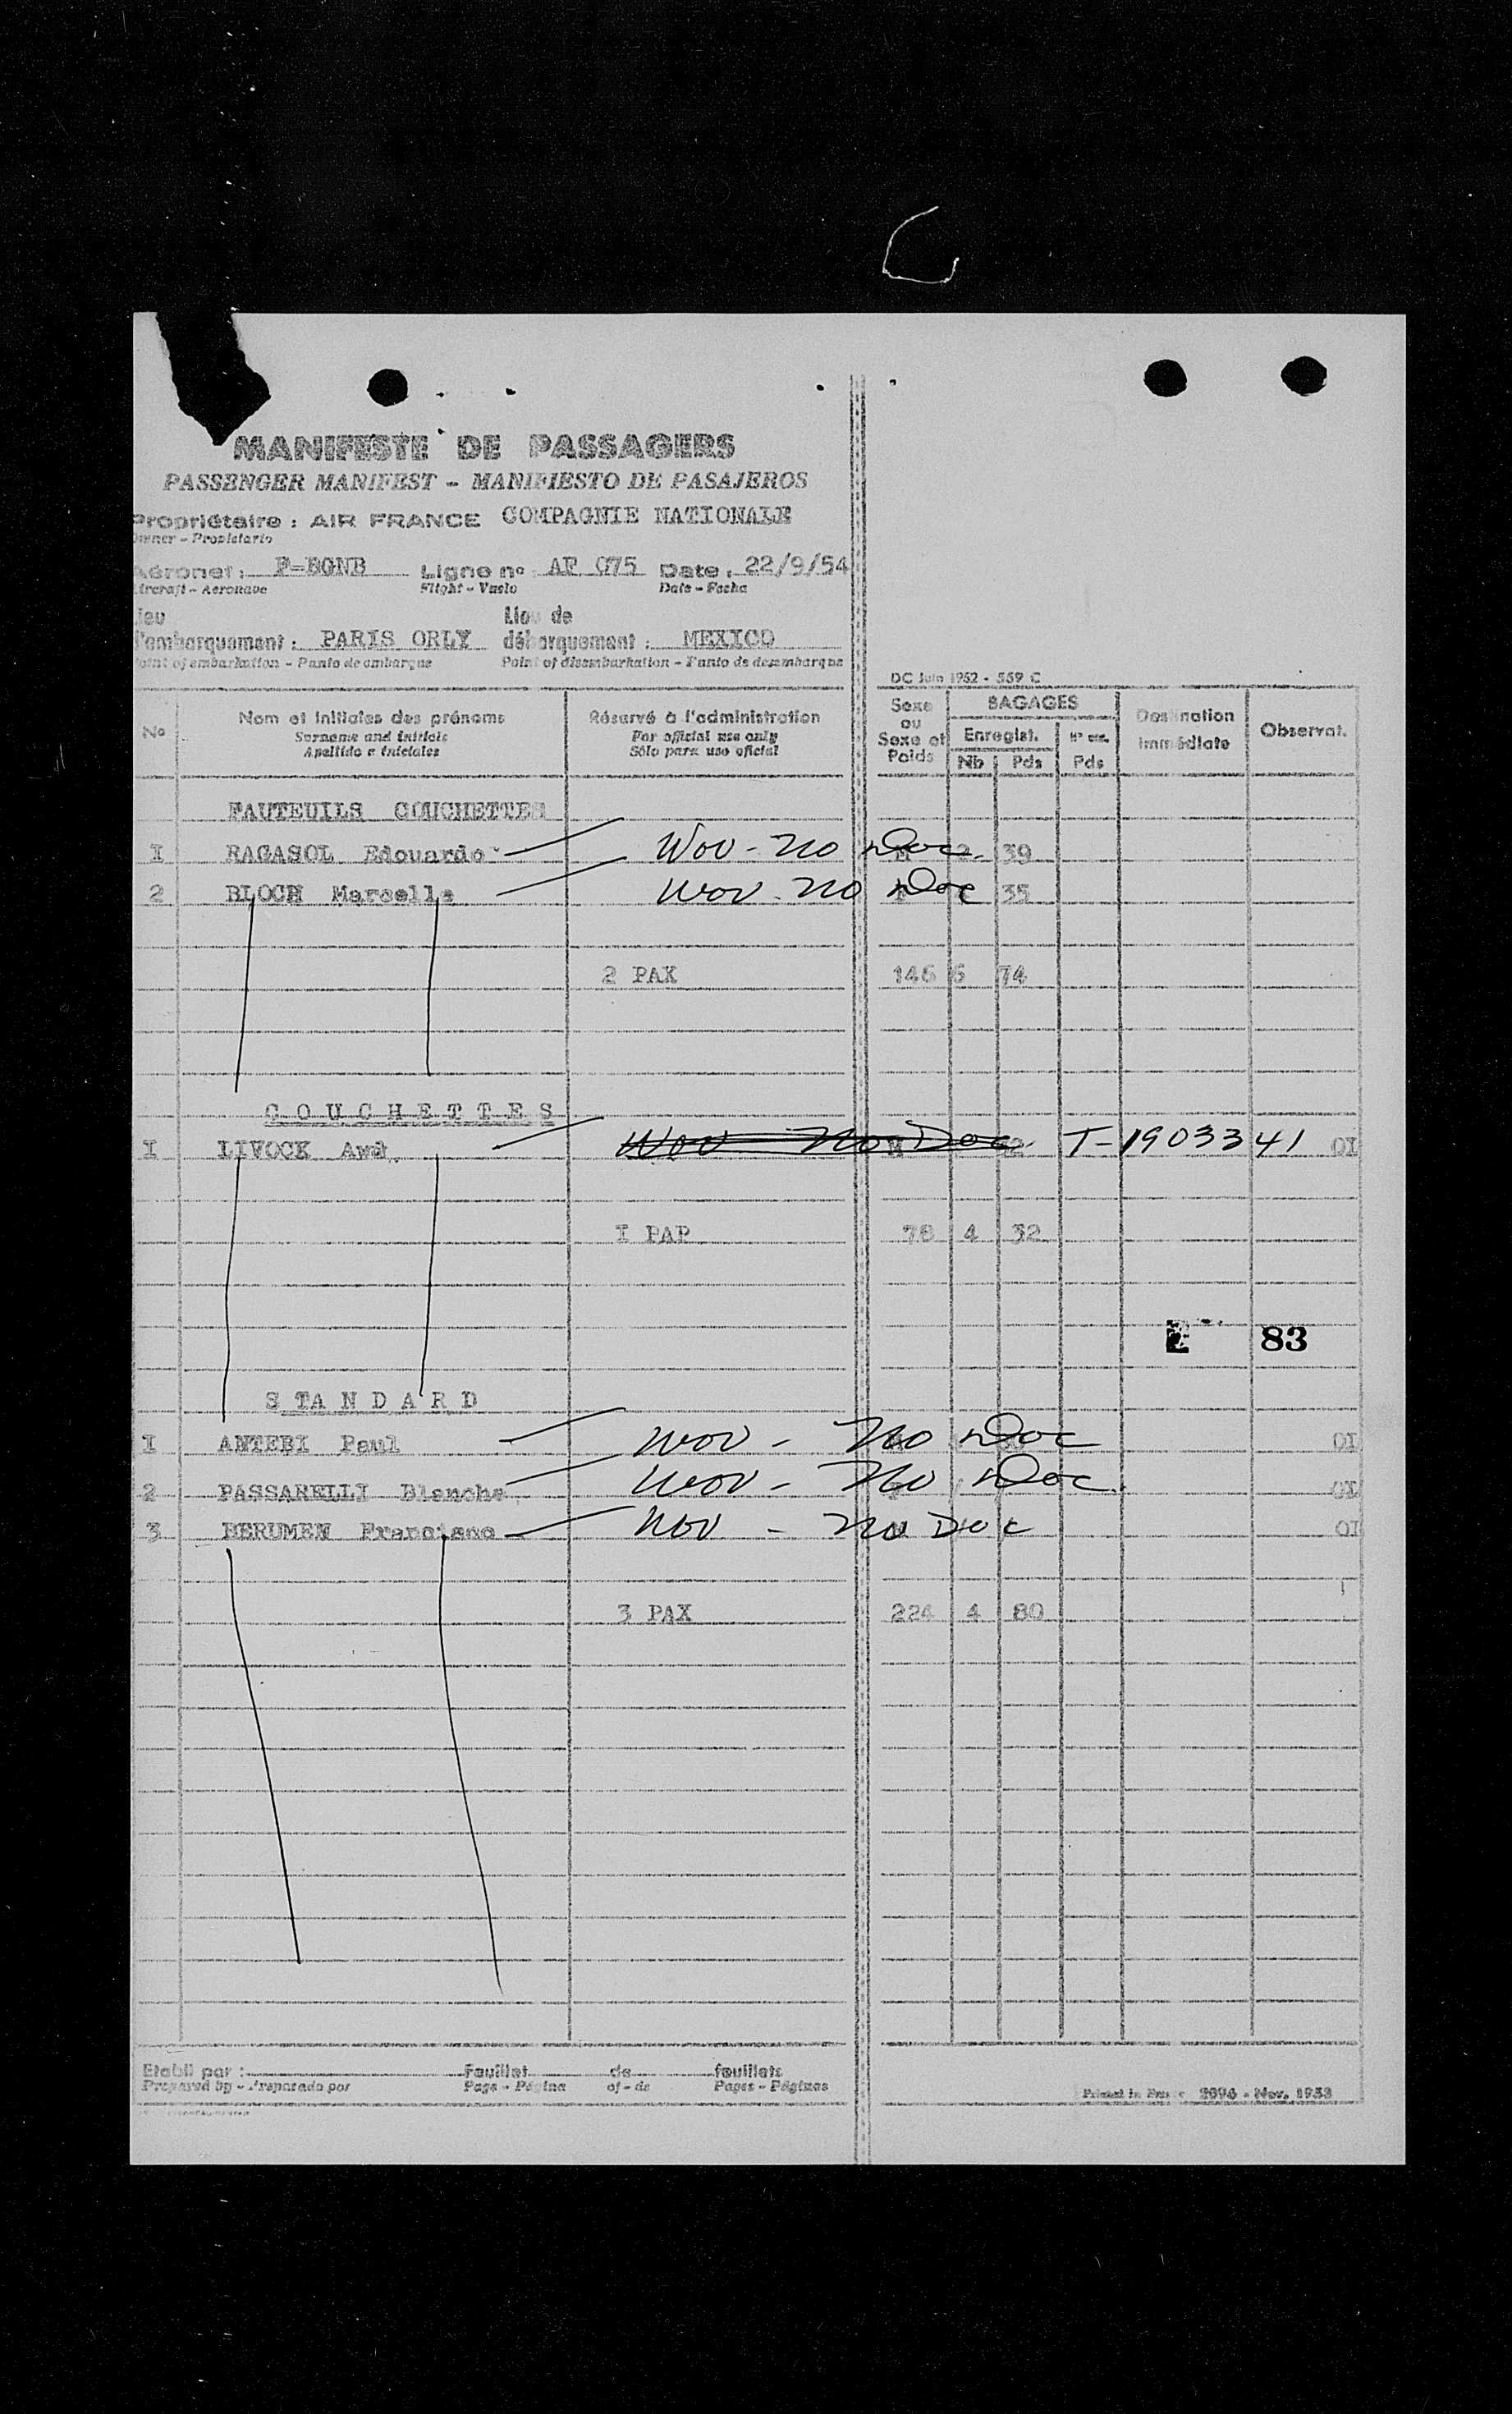 MANIFESTE DE PASSAGERS
PASSENGER MANIFEST - MANIFIESTO DE PASAJEROS
Propriétaire : AIR FRANCE COMPAGNIE NATIONALE
Owner - Propietario
Aéronef : F-BGNB Ligne no AF 075 Date : 22/9/54
Aircraft - Aeronave Flight - Vuelo Date - Fecha
Lieu Lieu de
d'embarquement : PARIS ORLY débarquement : MEXICO
Point of embarkation - Punto de embarque Point of disembarkation - Punto de desembarque
DC Juin 1952 - 559 C
No Nom et initiales des prénoms Réservé à l'administration Sexe ou Sexe et Poids BAGAGES Destination immédiate Observat.
Surname and initials For official use only Enregist.
Apellido e iniciales Sólo para uso oficial Nb Pds Pds
FAUTEUILS COUCHETTES
I RAGASOL Edouardo Wov - no Doc. 39
2 BLOCH Marcelle wov - no Doc 35
2 PAX 146 6 74
C O U C H E T T E S
I LIVOCK Awd Wov no Doc T-1903341 OI
I PAP 78 4 32
83
S T A N D A R D
I ANTEBI Paul wov - no Doc OI
2 PASSARELLI Blanche wov - no Doc. OI
3 BERUMEN Francisco wov - no Doc OI
3 PAX 224 4 80
Etabli par : Feuillet de feuillets
Prepared by - Preparado por Page - Página of - de Pages - Páginas
Printed in France 2094 - Nov. 1953